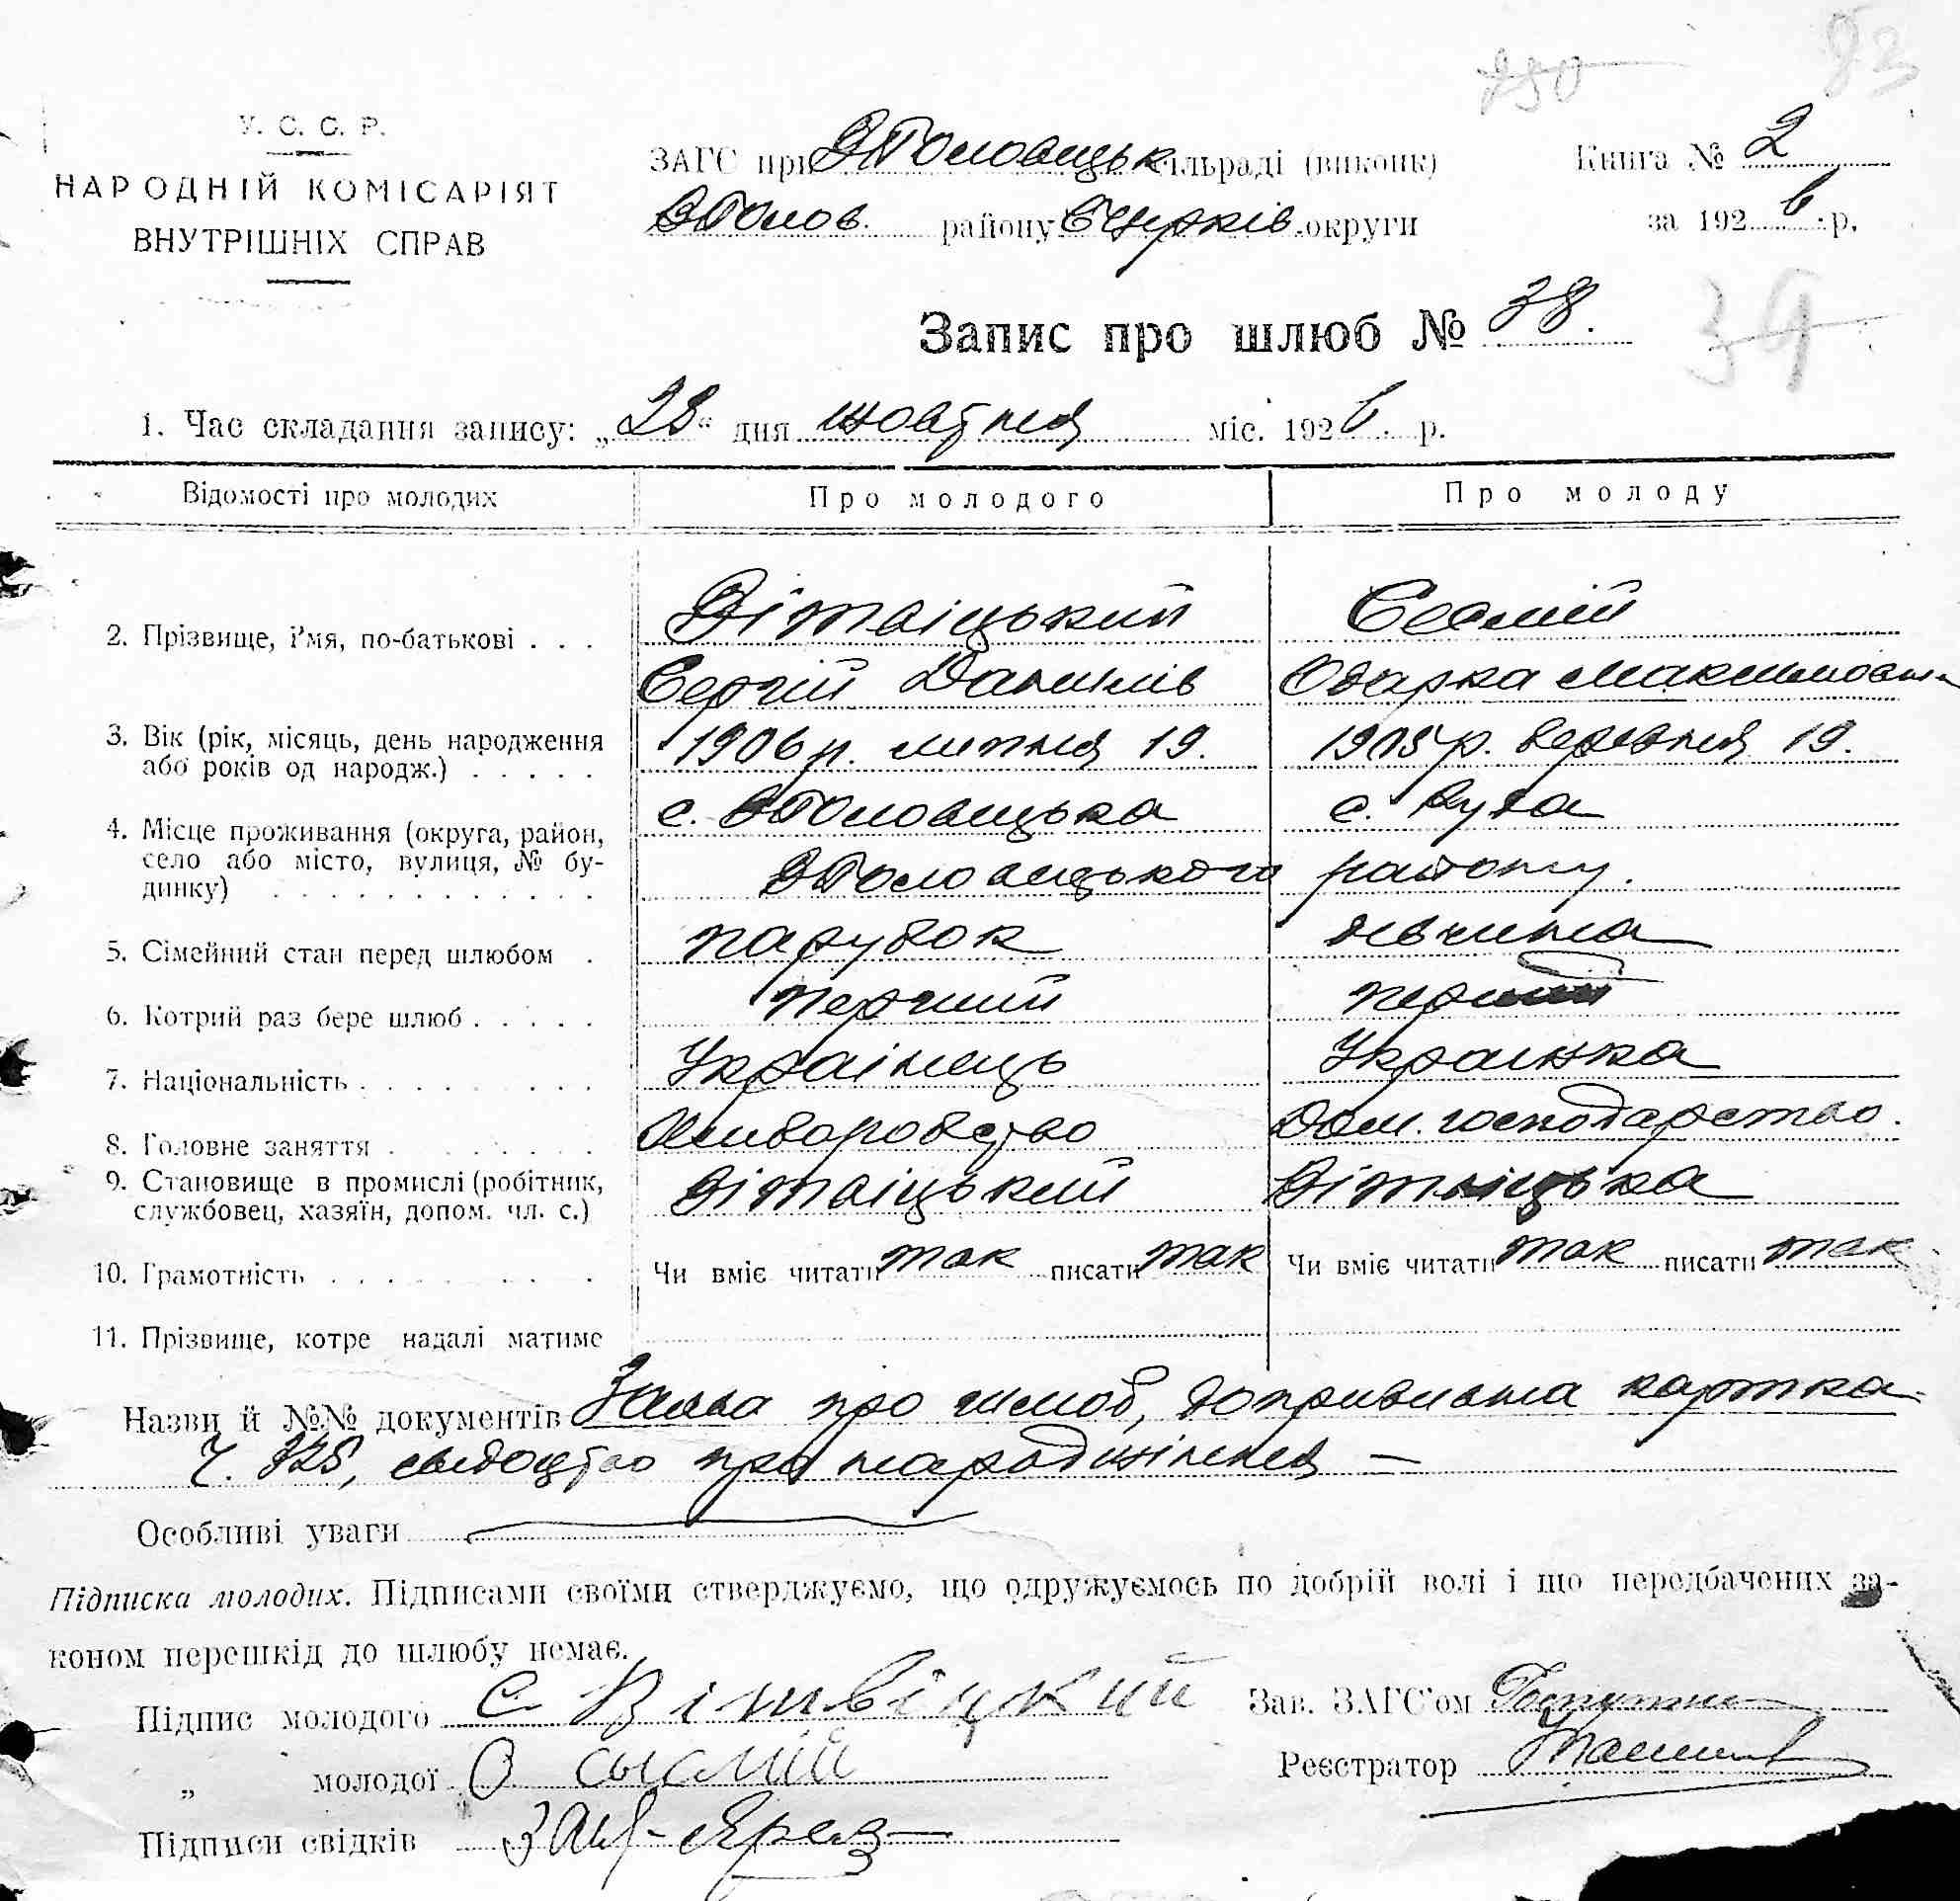 250 83
У. С. С. Р.
НАРОДНІЙ КОМІСАРІЯТ
ВНУТРІШНІХ СПРАВ
ЗАГС при В Половецьк сільраді (виконк)
ВПолов. району БЦерків. округи
Книга № 2
за 1926 р.
Запис про шлюб № 38.
39
1. Час складання запису: „28“ дня жовтня міс. 1926 р.
Відомості про молодих Про молодого Про молоду
2. Прізвище, і'мя, по-батькові . . .
Вітвіцький
Сергій Данилів
Сесмій
Одарка Максимовна
3. Вік (рік, місяць, день народження
або років од народж.) . . . . .
1906 р. липня 19.
1905 р. вересня 19.
4. Місце проживання (округа, район,
село або місто, вулиця, № бу-
динку) . . . . . . . . . . . .
с. ВПоловецька
с. Буда
ВПоловецького району.
5. Сімейний стан перед шлюбом . парубок дівчина
6. Котрий раз бере шлюб . . . . . перший перший
7. Національність . . . . . . . . . Українець Українка
8. Головне заняття . . . . . . . . Хліборобство Дом. господарство.
9. Становище в промислі (робітник,
службовец, хазяїн, допом. чл. с.)
Вітвіцький Вітвіцька
10. Грамотність . . . . . . . . . Чи вміє читати так писати так Чи вміє читати так писати так
11. Прізвище, котре надалі матиме
Назви й №№ документів Заява про шлюб, допризивна картка
Ч. 325, свідоцтво про народження —
Особливі уваги
Підписка молодих. Підписами своїми стверджуємо, що одружуємось по добрій волі і що передбачених за-
коном перешкід до шлюбу немає.
Підпис молодого С Вітвіцкий
Зав. ЗАГС'ом
„ молодої О сысмій
Реєстратор
Підписи свідків